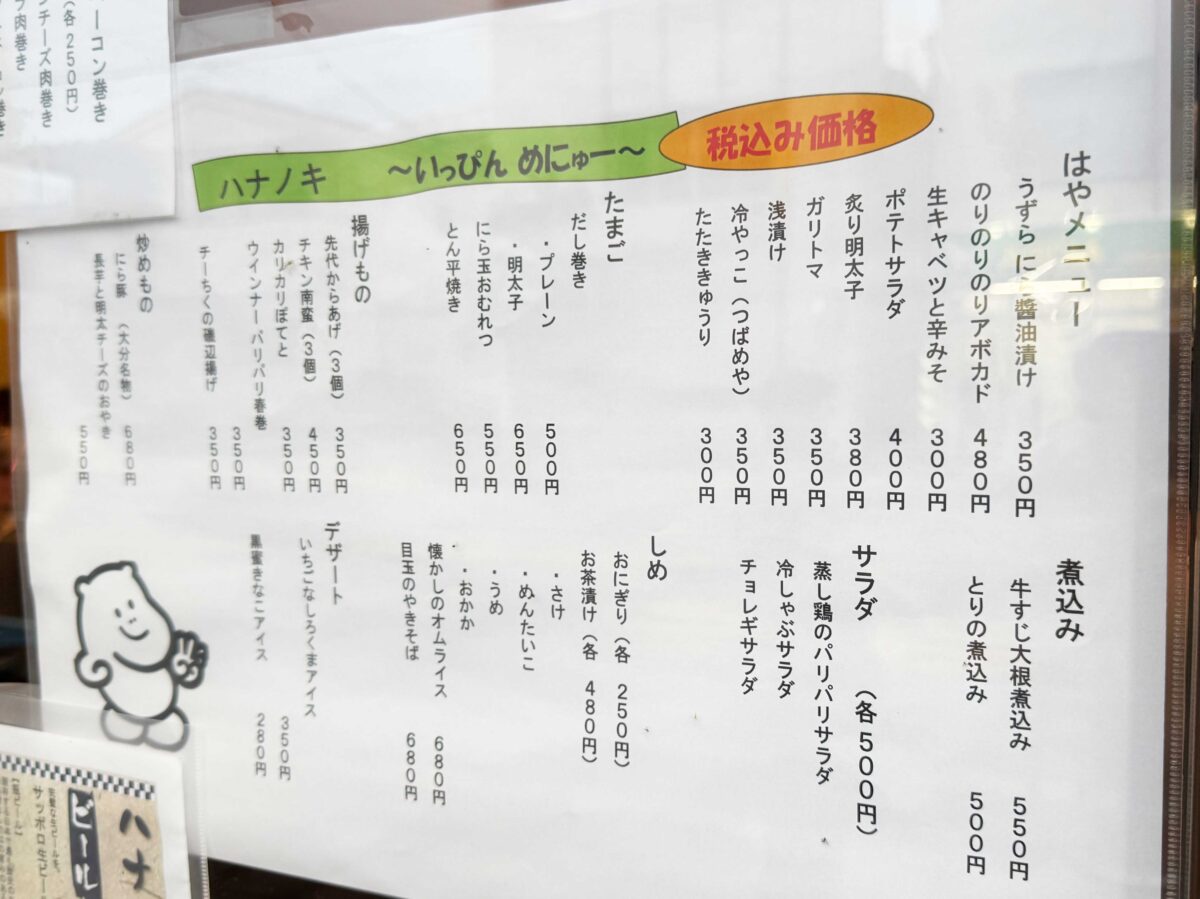 ハナノキ ～いっぴん めにゅー～
税込み価格
はやメニュー
うずら にら醤油漬け 350円
のりのりのりアボカド 480円
生キャベツと辛みそ 300円
ポテトサラダ 400円
炙り明太子 380円
ガリトマ 350円
浅漬け 350円
冷やっこ（つばめや） 350円
たたききゅうり 300円
たまご
だし巻き
・プレーン 500円
・明太子 650円
にら玉おむれつ 550円
とん平焼き 650円
揚げもの
先代からあげ（3個） 350円
チキン南蛮（3個） 450円
カリカリぽてと 350円
ウインナーパリパリ春巻 350円
チーちくの磯辺揚げ 350円
炒めもの
にら豚 （大分名物） 680円
長芋と明太チーズのおやき 550円
煮込み
牛すじ大根煮込み 550円
とりの煮込み 500円
サラダ （各500円）
蒸し鶏のパリパリサラダ
冷しゃぶサラダ
チョレギサラダ
しめ
おにぎり（各 250円）
お茶漬け（各 480円）
・さけ
・めんたいこ
・うめ
・おかか
懐かしのオムライス 680円
目玉のやきそば 680円
デザート
いちごなしろくまアイス 350円
黒蜜きなこアイス 280円
ーコン巻き
（各250円）
チーズ肉巻き
肉巻き
ハナ
ビール
サッポロ生ビー